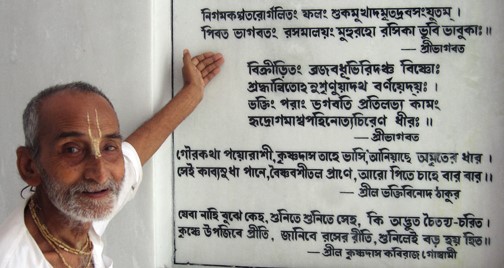 নিগমকল্পতরোর্গলিতং ফলং শুকমুখাদমৃতদ্রবসংযুতম্ ।
পিবত ভাগবতং রসমালয়ং মুহুরহো রসিকা ভুবি ভাবুকাঃ ॥
— শ্রীভাগবত
বিক্রীড়িতং ব্রজবধূভিরিদঞ্চ বিষ্ণোঃ
শ্রদ্ধান্বিতোহনুশৃণুয়াদথ বর্ণয়েদ্যঃ ।
ভক্তিং পরাং ভগবতি প্রতিলভ্য কামং
হৃদ্রোগমাশ্বপহিনোত্যচিরেণ ধীরঃ ॥
— শ্রীভাগবত
গৌরকথা পয়োরাশী, কৃষ্ণদাস তাহে ভাসি, আনিয়াছে অমৃতের ধার ।
সেই কাব্যসুধা পানে, বৈষ্ণবশীতল প্রাণে, আরো পিতে চাহে বার বার ॥
— শ্রীল ভক্তিবিনোদ ঠাকুর
যেবা নাহি বুঝে কেহ, শুনিতে শুনিতে সেহ, কি অদ্ভুত চৈতন্য-চরিত ।
কৃষ্ণে উপজিবে প্রীতি, জানিবে রসের রীতি, শুনিলেই বড় হয় হিত ॥
— শ্রীল কৃষ্ণদাস কবিরাজ গোস্বামী